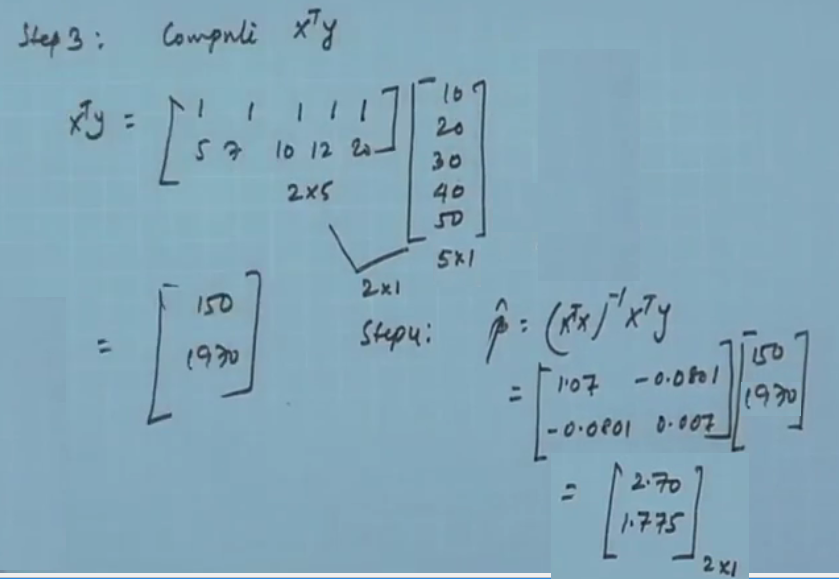 Step 3: Compute xᵀy
xᵀy = [1 1 1 1 1
5 7 10 12 20]
2x5
[10
20
30
40
50]
5x1
2x1
= [150
1970]
Step 4: β̂ = (xᵀx)⁻¹xᵀy
= [1.07 -0.0801
-0.0801 0.007] [150
1970]
= [2.70
1.775]
2x1